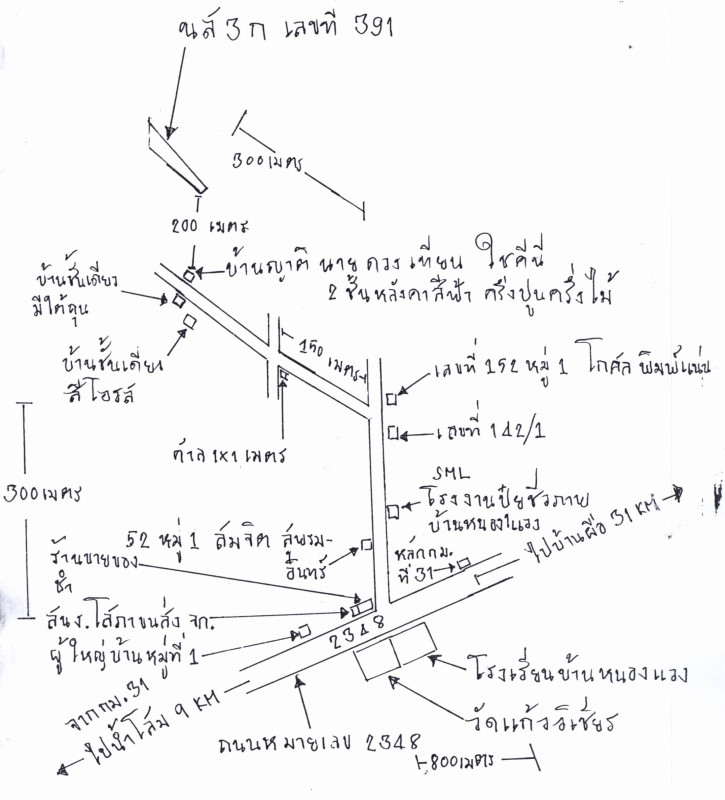 นส 3 ก เลขที่ 391
300 เมตร
200 เมตร
บ้านญาติ นาย ดวง เทียน ใชคีนี
2 ชั้นหลังคาสีฟ้า ครึ่งปูนครึ่งไม้
บ้านชั้นเดียว
มีใต้ถุน
บ้านชั้นเดียว
สีโอรส
150 เมตร
เลขที่ 152 หมู่ 1 โกศล พิมพ์แน่น
เลขที่ 142/1
ศาล 1x1 เมตร
300 เมตร
SML
โรงงานปุ๋ยชีวภาพ
บ้านหนองแวง
52 หมู่ 1 สมจิต สุ่นรม-
อินทร์
หลักกม.
ที่ 31
ไปบ้านผือ 31 KM
ร้านขายของ
ชำ
สนง. โสภาขนส่ง จก.
ผู้ใหญ่บ้านหมู่ที่ 1
2348
โรงเรียนบ้านหนองแวง
วัดแก้ววิเชียร
จากกม. 31
ไปน้ำโสม 9 KM
ถนนหมายเลข 2348
800 เมตร